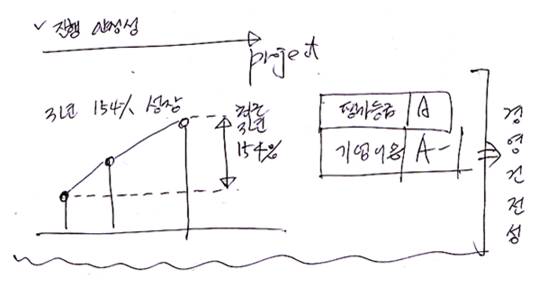 ✓ 진행 안정성
project
3년 154% 성장
최근
3년
154%
평가등급 A
기업어음 A-
경영건전성